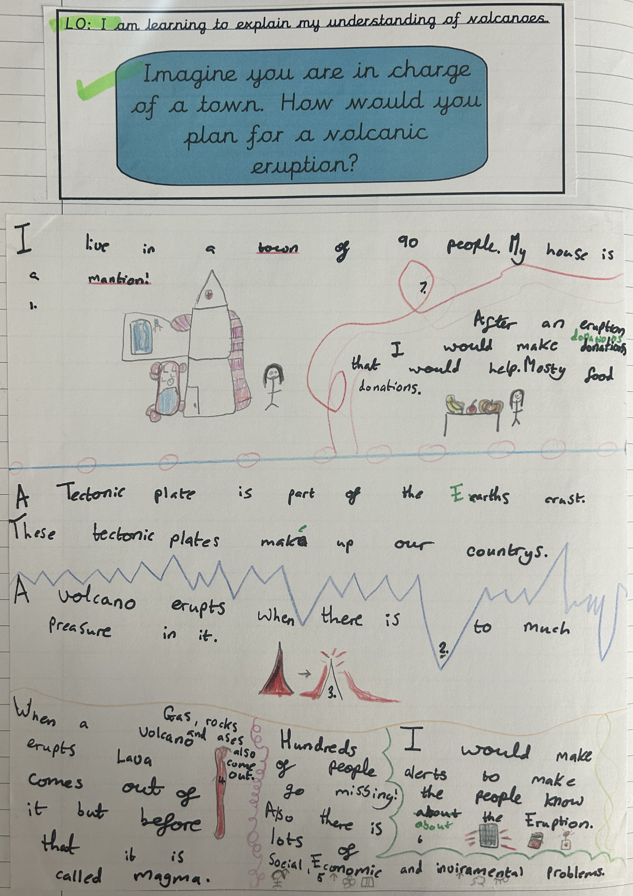 LO: I am learning to explain my understanding of volcanoes.
Imagine you are in charge
of a town. How would you
plan for a volcanic
eruption?
I live in a town of 90 people. My house is
a mantion!
1.
7.
After an eruption
donations
I would make donations
that would help. Mosty food
donations.
A Tectonic plate is part of the Earths crust.
These tectonic plates make up our countrys.
A volcano erupts when there is to much
Preasure in it.
2.
3.
When a Gas, rocks
volcano and ases
erupts Lava also
come
out.
comes out of
4
it but before
that it is
called magma.
Hundreds
of people
go missing!
Also there is
lots of
Social, Economic and inviramental Problems.
5
I would make
alerts to make
the people know
about the Eruption.
about
6